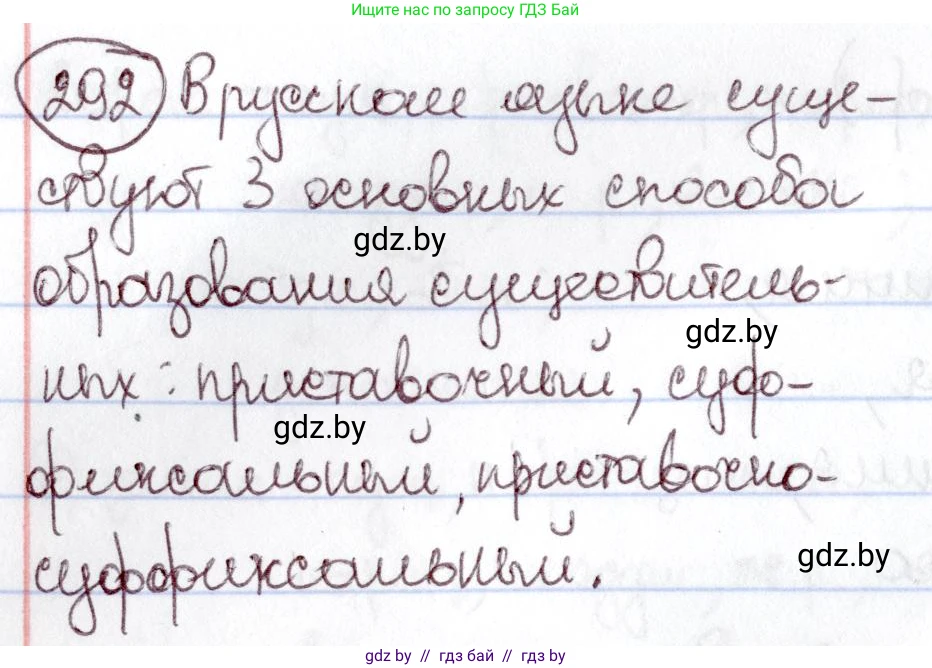 Ищите нас по запросу ГДЗ Бай
292 В русском языке суще-
ствуют 3 основных способа
gdz.by
образования существитель-
gdz.by
ных: приставочный, суф-
gdz.by
фиксальный, приставочно-
gdz.by
суффиксальный.
gdz.by // гдз бай // гдз by